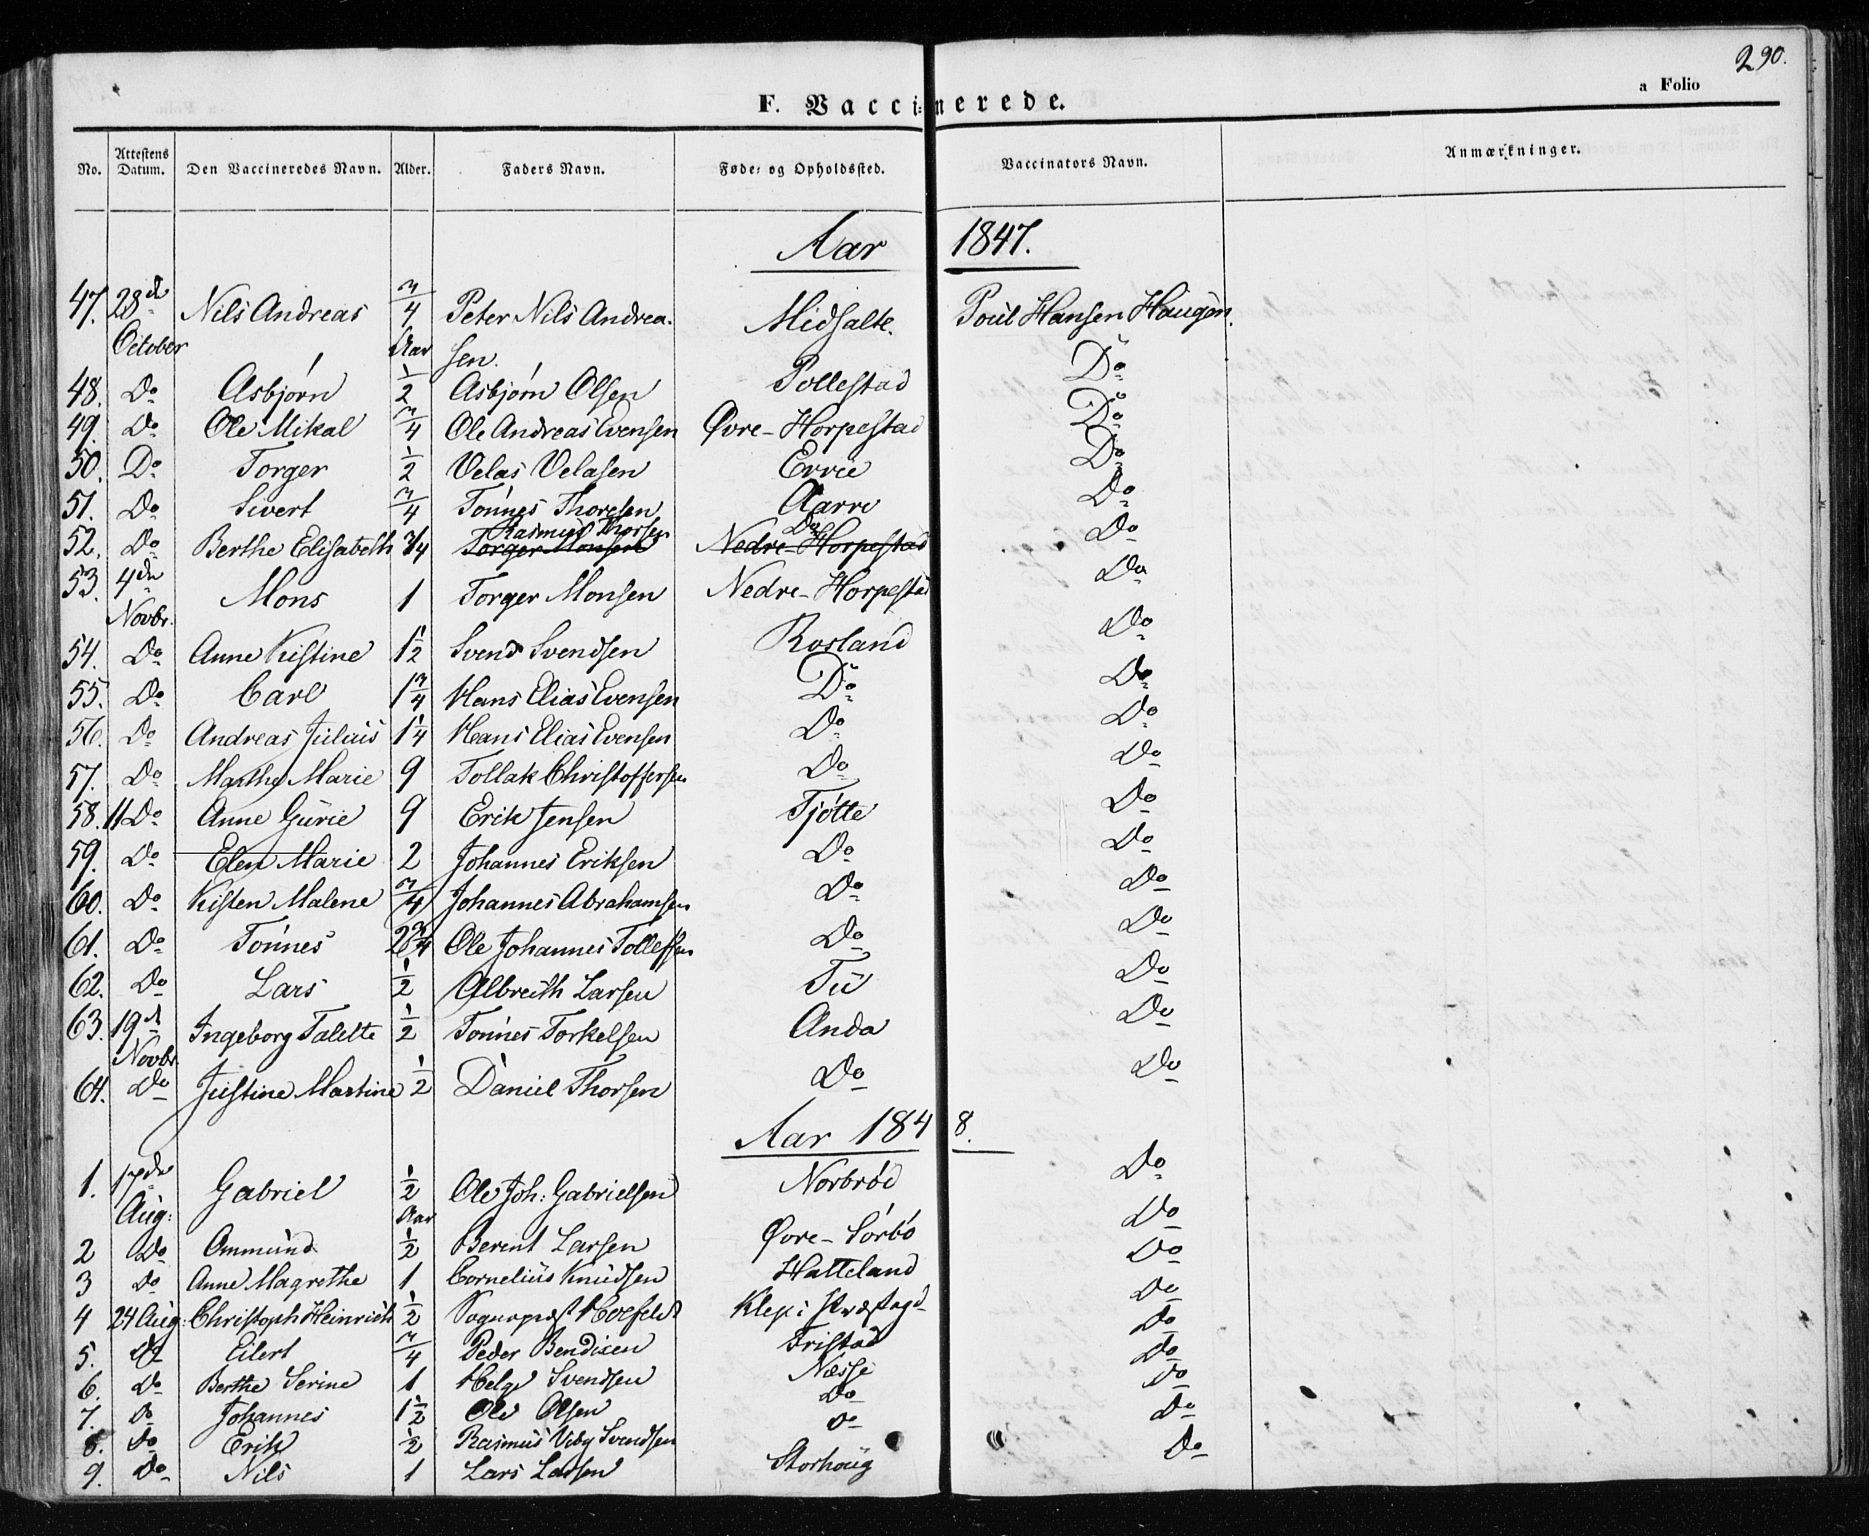 290.
a Folio
F. Vaccinerede.
No. Attestens Datum. Den Vaccineredes Navn. Alder. Faders Navn. Føde- og Opholdssted. Vaccinators Navn. Anmærkninger.
Aar 1847.
47. 28de October Nils Andreas 3/4 Aar Peter Nils Andreasen. Midsalte. Poul Hansen Haugen.
48. Do Asbjørn 1/2 Asbjørn Olsen Pollestad Do
49. Do Ole Mikal 3/4 Ole Andreas Evensen Øvre-Horpestad Do
50. Do Torger 1/2 Velas Velasen Errie Do
51. Do Sivert 3/4 Tønnes Thoresen Aarre Do
52. Do Berthe Elisabeth 3/4 Rasmus Thorsen Do Do
Torger Monsen Nedre-Horpestad
53. 4de Novbr. Mons 1 Torger Monsen Nedre-Horpestad Do
54. Do Anne Kistine 1 1/2 Svend Svendsen Rosland Do
55. Do Carl 1 3/4 Hans Elias Evensen Do Do
56. Do Andreas Julius 1 1/4 Hans Elias Evensen Do Do
57. Do Marthe Marie 9 Tollak Christoffersen Do Do
58. 11 Do Anne Gurie 9 Erik Jensen Tjøtte Do
59. Do Elen Marie 2 Johannes Eriksen Do Do
60. Do Kisten Malene 3/4 Johannes Abrahamsen Do Do
61. Do Tønnes Ole Johannes Tollefsen Do Do
62. Do Lars 1/2 Albreith Larsen Tu Do
63. 19d Novbr. Ingeborg Talette 1/2 Tønnes Torkelsen Anda Do
64. Do Justine Martine 1/2 Daniel Thorsen Do Do
Aar 1848.
1. 17de Aug: Gabriel 1/2 Aar Ole Joh: Gabrielsen Norbrød Do
2 Do Ommund 1/2 Berent Larsen Øvre-Sørbø Do
3 Do Anne Magrethe 1 Cornelius Knudsen Hatteland Do
4 24 Aug: Christoph Heinrich 1/2 Sognepræst Klep Do
5. Do Eilert 3/4 Peder Bendixen Fristad Do
6. Do Berthe Serine 1 Helge Svendsen Næsse Do
7. Do Johannes 1 1/2 Ole Olsen Do Do
8. Do Erik 1/2 Rasmus Viby Svendsen Do Do
9. Do Nils 1 Lars Larsen Storhoug Do